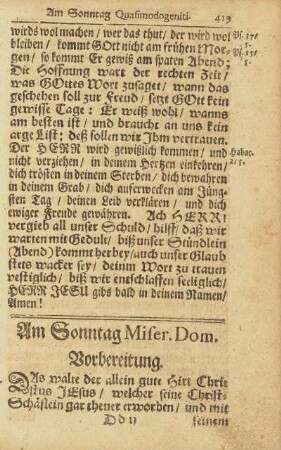 Am Sonntag Quasimodogeniti. 419
wirds wol machen/ wer das thut/ der wird wol Ps. 37/
bleiben/ kommt GOtt nicht am frühen Mor-
gen/ so kommt Er gewiß am spaten Abend;
Die Hoffnung wart der rechten Zeit/
was GOttes Wort zusaget/ wann das
geschehen soll zur Freud/ setzt GOtt kein
gewisse Tage: Er weiß wohl/ wanns
am besten ist/ und braucht an uns kein
arge List; deß sollen wir Ihm vertrauen.
Der HERR wird gewißlich kommen/ und Habac.
nicht verziehen/ in deinem Hertzen einkehren/
dich trösten in deinem Sterben/ dich bewahren
in deinem Grab/ dich auferwecken am Jüng-
sten Tag/ deinen Leib verklären/ und dich
ewiger Freude gewähren. Ach HERR!
vergieb all unser Schuld/ hilff/ daß wir
warten mit Gedult/ biß unser Stündlein
(Abend) kommt herbey/ auch unser Glaub
stets wacker sey/ deinm Wort zu trauen
vestiglich/ biß wir entschlaffen seeliglich/
HERR JESU gibs bald in deinem Namen/
Amen!
Am Sonntag Miser. Dom.
Vorbereitung.
DAs walte der allein gute Hirt Chri-
stus JEsus/ welcher seine Christ-
Schäflein gar theuer erworben/ und mit
Dd ij seinem